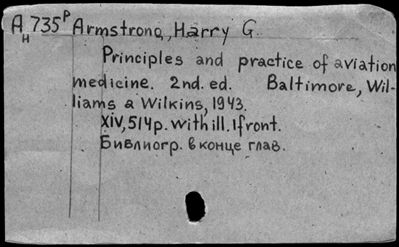 A 735 P Armstrong, Harry G.
H
Principles and practice of aviation
medicine. 2nd. ed. Baltimore, Wil-
liams a Wilkins, 1943.
XIV, 514p. with ill. 1front.
Библиогр. в конце глав.